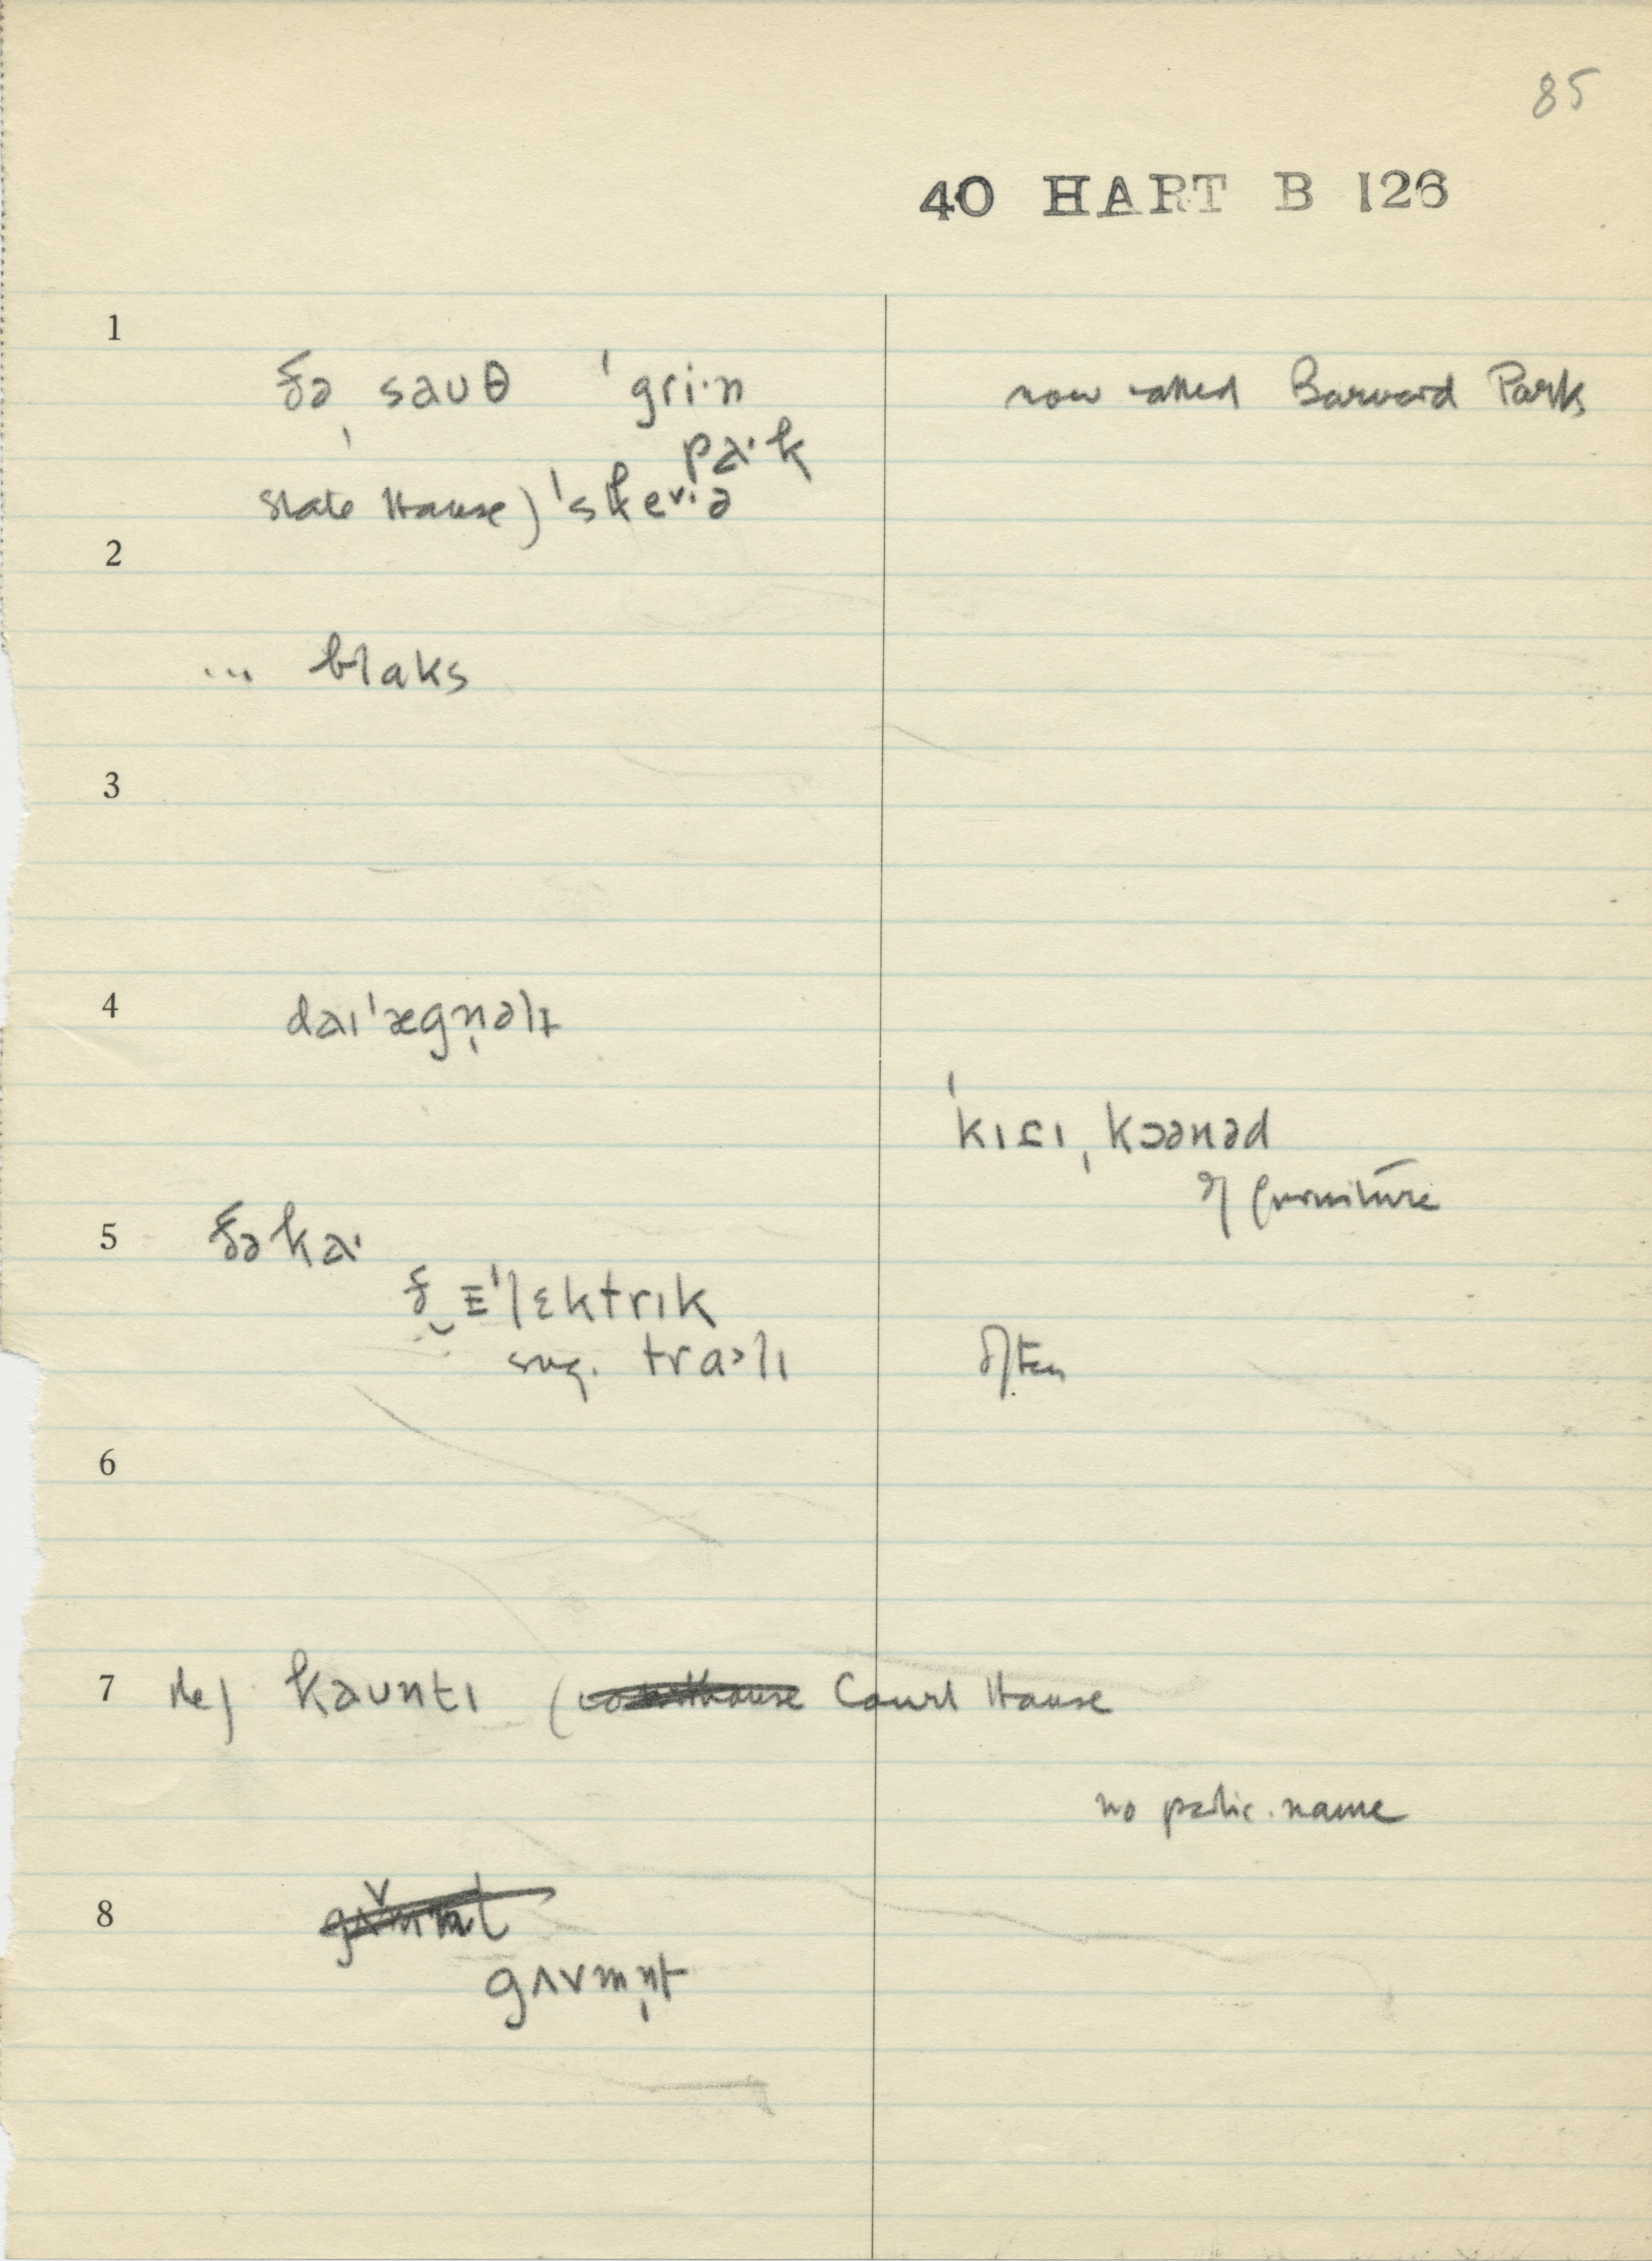 85
40 HART B 126
1
ðə sauθ ˈgri·n
now called Barnard Park
pa·k
State House) ˈste˅·ə
2
... blaks
3
4
daɪˈægn̩əlɪ
ˈkɪɾɪˌkɔənəd
of furniture
5 ðə ka·
ð‿ᴇˈlɛktrɪk
sug. tra>lɪ
often
6
7 the) kauntɪ (courthouse Court House
no partic. name
8
gʌvmn̩t